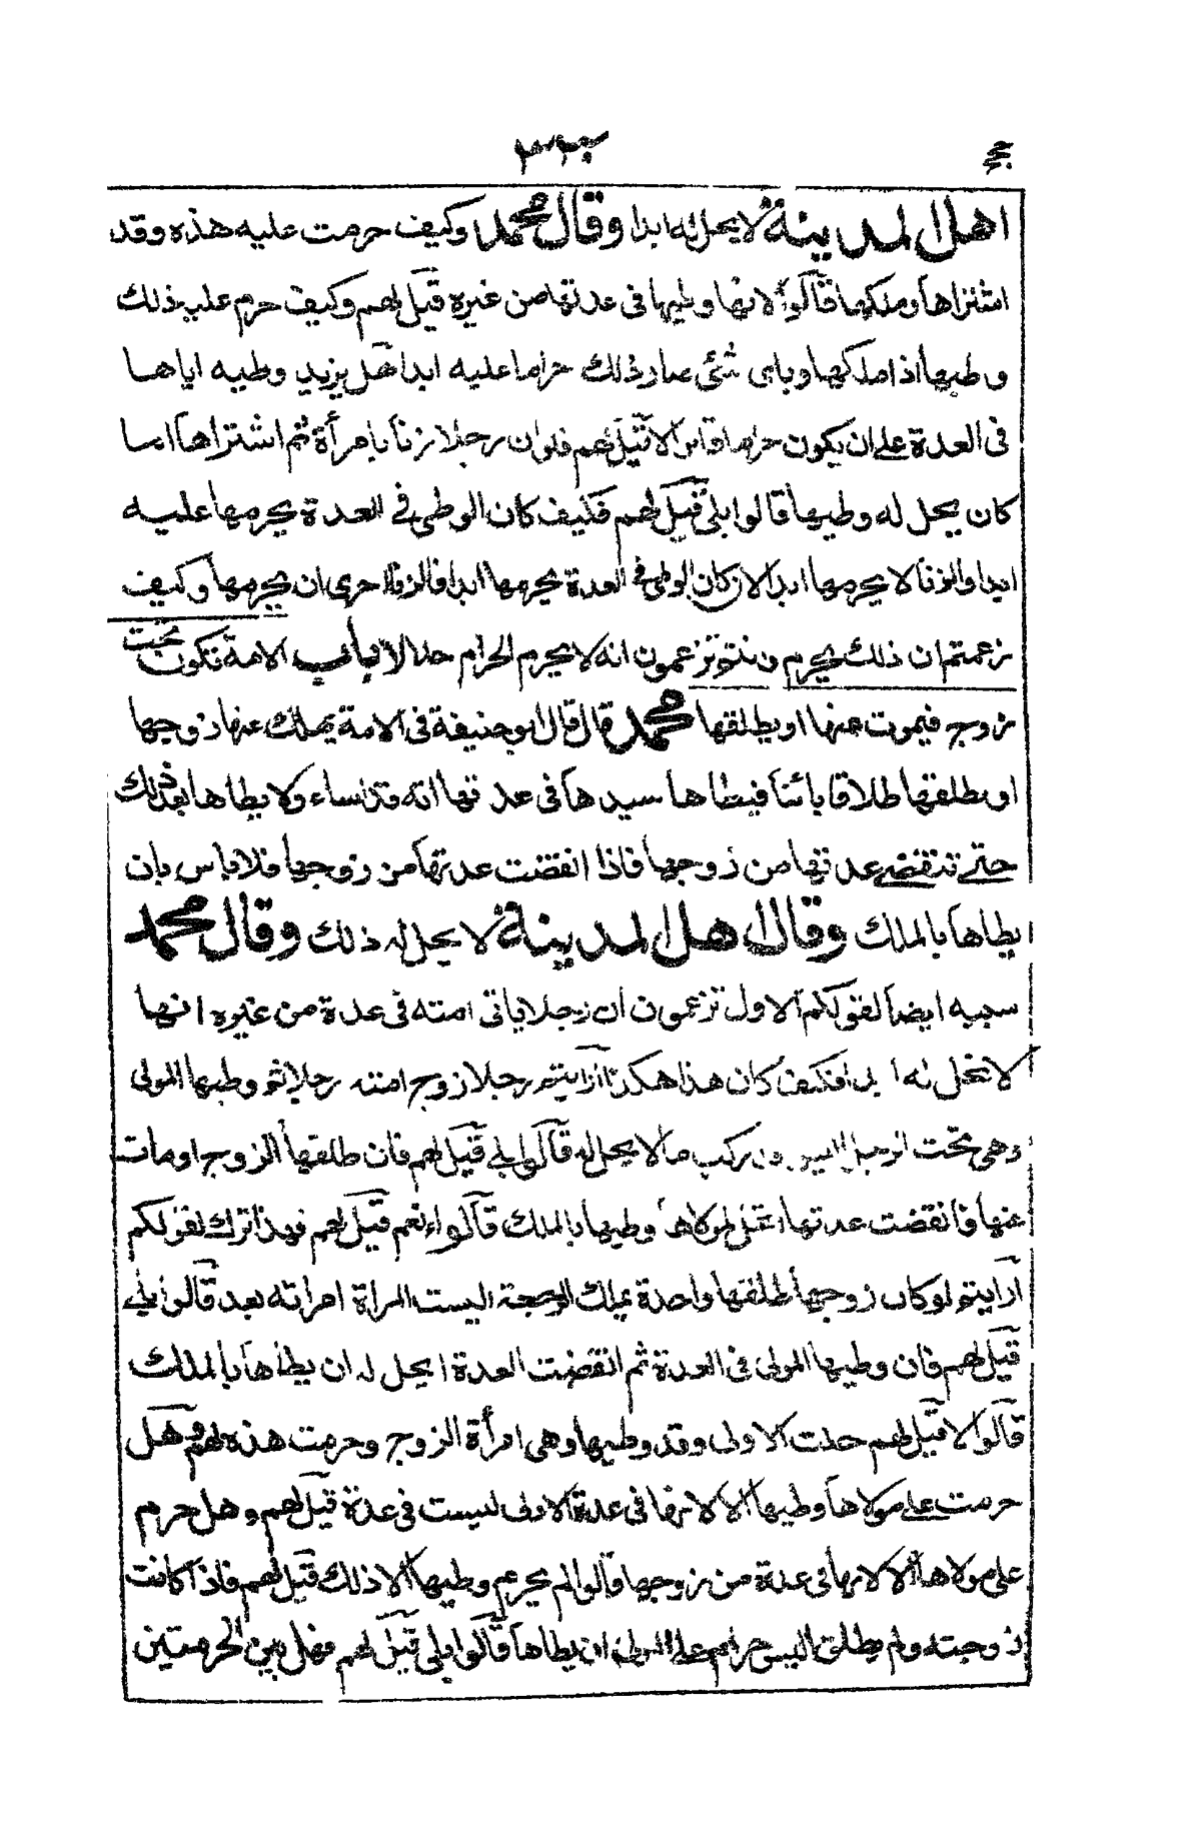 اهل المدينة لا يحل له ابدا وقال محمد وكيف حرمت عليه هذه وقد
اشتراها وملكها قالوا لانه وطيها فى عدتها من غيره قيل لهم وكيف حرم عليه ذلك
وطيها اذا ملكها وباى شئى صار ذلك حراما عليه ابدا هل يزيد وطيه اياها
فى العدة على ان يكون حراما قالوا لا قيل لهم فلو ان رجلا زنا بامرأة ثم اشتراها اما
كان يحل له وطيها قالوا بلى قيل لهم فكيف كان الوطى فى العدة يحرمها عليه
ابدا والزنا لا يحرمها ابدا لان كان الوطى فى العدة يحرمها ابدا فالزنا احرى ان يحرمها وكيف
زعمتم ان ذلك يحرم وانتم تزعمون انه لا يحرم الحرام حلالا باب الامة تكون تحت
زوج فيموت عنها او يطلقها محمد قال قال ابو حنيفة فى الامة يهلك عنها زوجها
او يطلقها طلاقا بائنا فيطاها سيدها فى عدتها انه قد اساء ولا يطاها بعد ذلك
حتى تنقضى عدتها من زوجها فاذا انقضت عدتها من زوجها فلا باس بان
يطاها بالملك وقال اهل المدينة لا يحل له ذلك وقال محمد
سبيه ايضا لقولكم الاول تزعمون ان رجلا ياتى امته فى عدة من غيره انها
لا تحل له ابدا فكيف كان هذا هكذا ارايتم رجلا زوج امته رجلا ثم وطيها المولى
وهى تحت الرجل اليس يركب ما لا يحل له قالوا بلى قيل لهم فان طلقها الزوج او مات
عنها فانقضت عدتها اتحل لمولاها وطيها بالملك قالوا نعم قيل لهم فهذا ترك لقولكم
ارايتم لو كان زوجها طلقها واحدة يملك الرجعة اليست المراة امراته بعد قالوا بلى
قيل لهم فان وطيها المولى فى العدة ثم انقضت العدة ايحل له ان يطاها بالملك
قالوا لا قيل لهم حلت الاولى وقد وطيها وهى امرأة الزوج وحرمت هذه لهم وهل
حرمت على مولاها وطيها الا لانها فى عدة الاولى ليست فى عدة قيل لهم وهل حرم
على مولاها الا لانها فى عدة من زوجها قالوا لم يحرم وطيها الا ذلك قيل لهم فاذا كانت
زوجته ولم يطلق اليس حرام على المولى ان يطاها قالوا بلى قيل لهم فهل بين الحرمتين